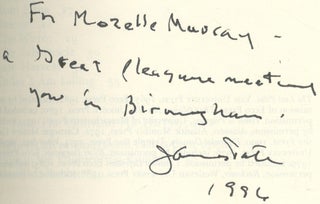 For Mozelle Murray -
a great pleasure meeting
you in Birmingham.
James Tate
1996